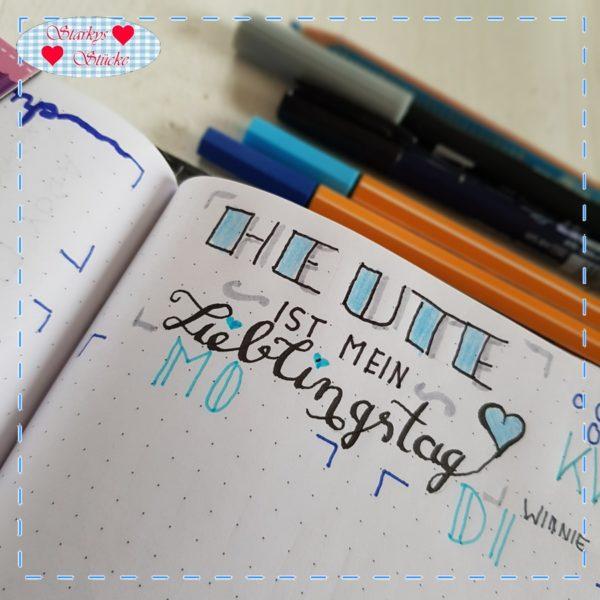 Starkys
Stücke
HEUTE
IST MEIN
Lieblingstag
MO
DI
WINNIE